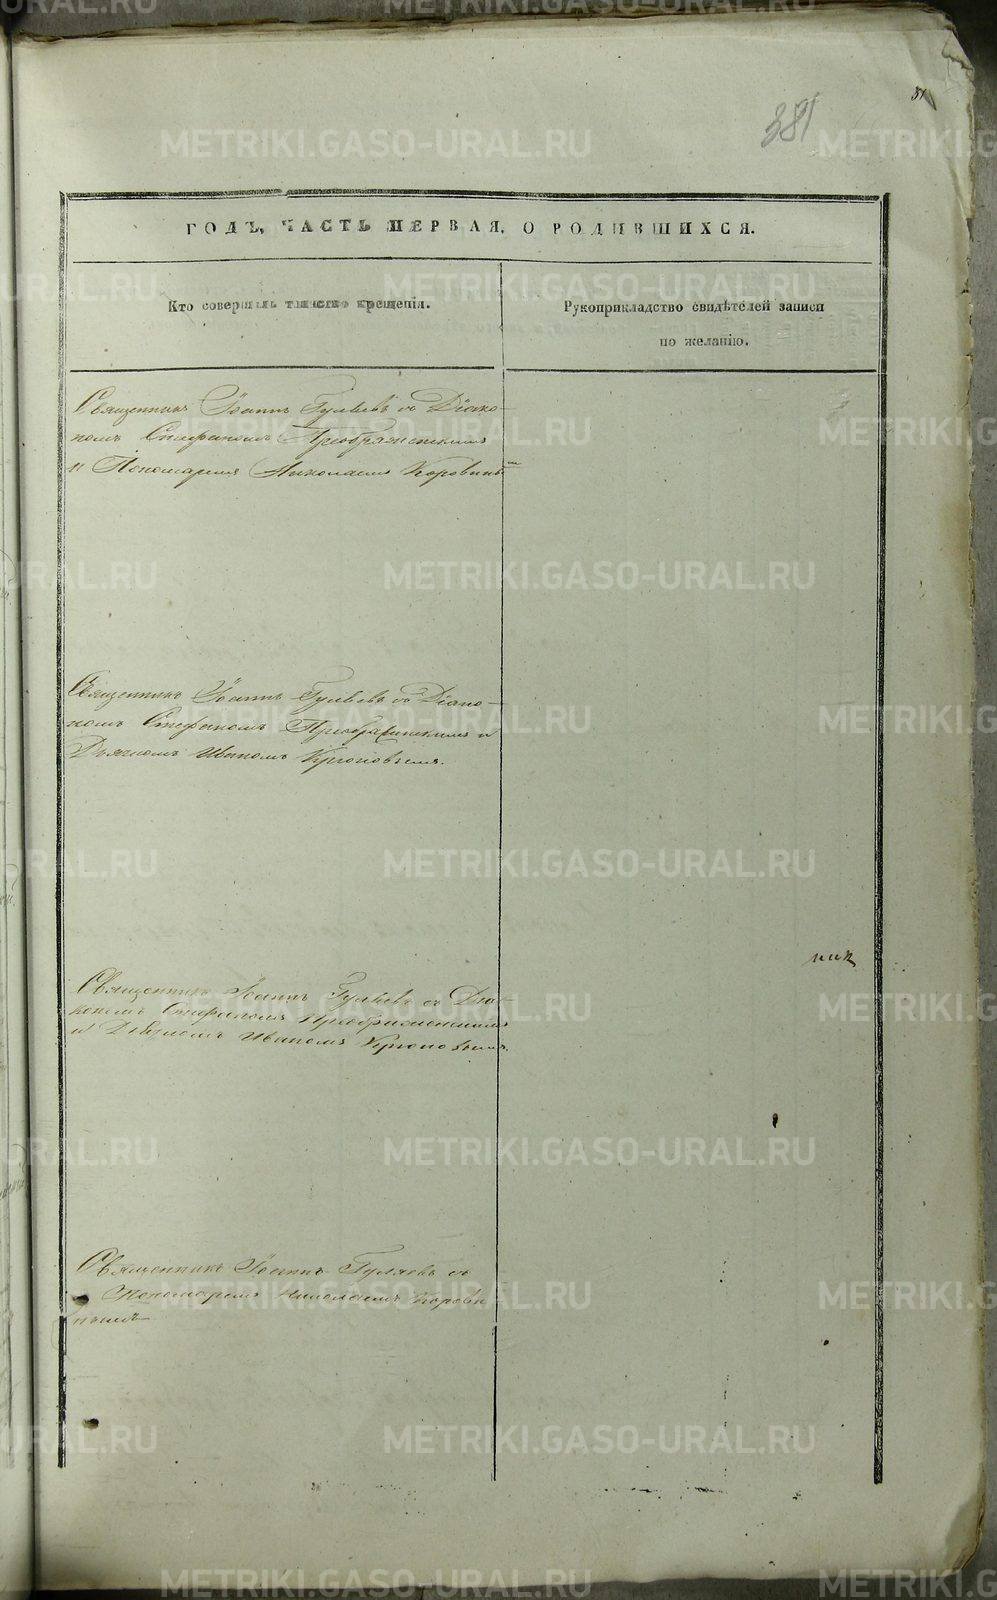 381
ГОДЪ, ЧАСТЬ ПЕРВАЯ, О РОДИВШИХСЯ.
Кто совершалъ таинство крещенія.
Рукоприкладство свидѣтелей записи
по желанію.
Священникъ Іоаннъ Гуляевъ съ Діако-
номъ Стефаномъ Преображенскимъ
и Пономаремъ Николаемъ Коровинымъ
Священникъ Іоаннъ Гуляевъ съ Діако-
номъ Стефаномъ Преображенскимъ и
Дьячкомъ Иваномъ Крюковымъ.
Священникъ Іоаннъ Гуляевъ съ Діа-
кономъ Стефаномъ Преображенскимъ
и Дьячкомъ Иваномъ Крюковымъ.
Священникъ Іоаннъ Гуляевъ съ
Пономаремъ Николаемъ Корови-
нымъ
METRIKI.GASO-URAL.RU